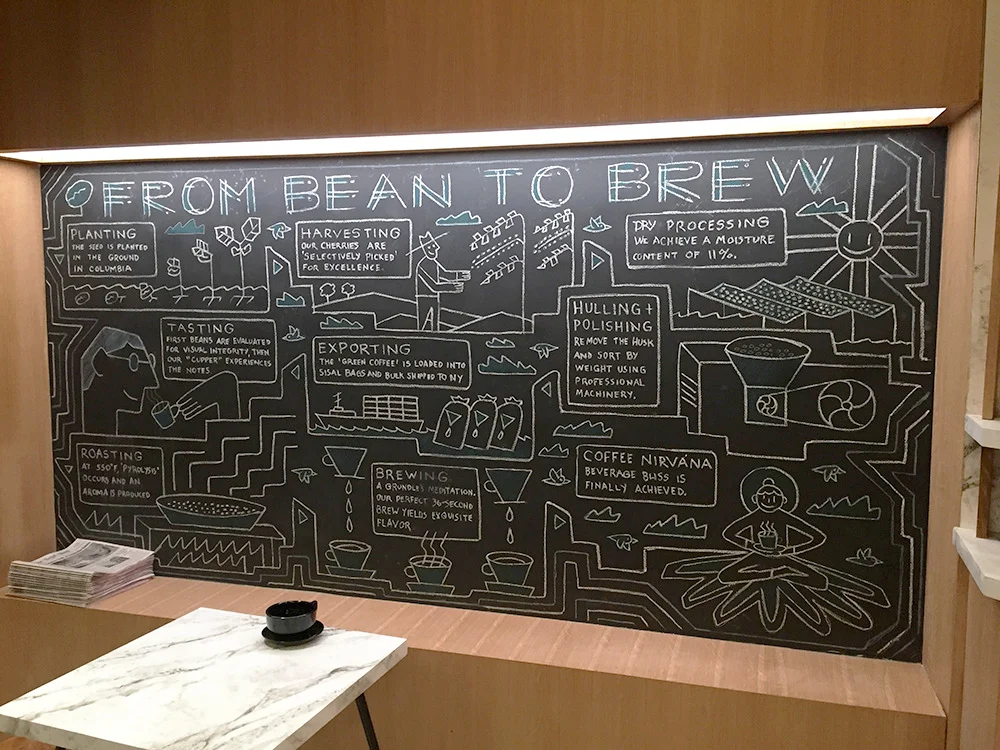 FROM BEAN TO BREW
PLANTING
THE SEED IS PLANTED
IN THE GROUND
IN COLUMBIA
HARVESTING
OUR CHERRIES ARE
'SELECTIVELY PICKED'
FOR EXCELLENCE.
DRY PROCESSING
WE ACHIEVE A MOISTURE
CONTENT OF 11%.
HULLING +
POLISHING
REMOVE THE HUSK
AND SORT BY
WEIGHT USING
PROFESSIONAL
MACHINERY.
EXPORTING
THE 'GREEN COFFEE' IS LOADED INTO
SISAL BAGS AND BULK SHIPPED TO NY
TASTING
FIRST BEANS ARE EVALUATED
FOR VISUAL INTEGRITY, THEN
OUR "CUPPER" EXPERIENCES
THE NOTES
ROASTING
AT 550°F, 'PYROLYSIS'
OCCURS AND AN
AROMA IS PRODUCED
BREWING
A GRUNDLE'S MEDITATION.
OUR PERFECT 36-SECOND
BREW YIELDS EXQUISITE
FLAVOR
COFFEE NIRVÁNA
BEVERAGE BLISS IS
FINALLY ACHIEVED.